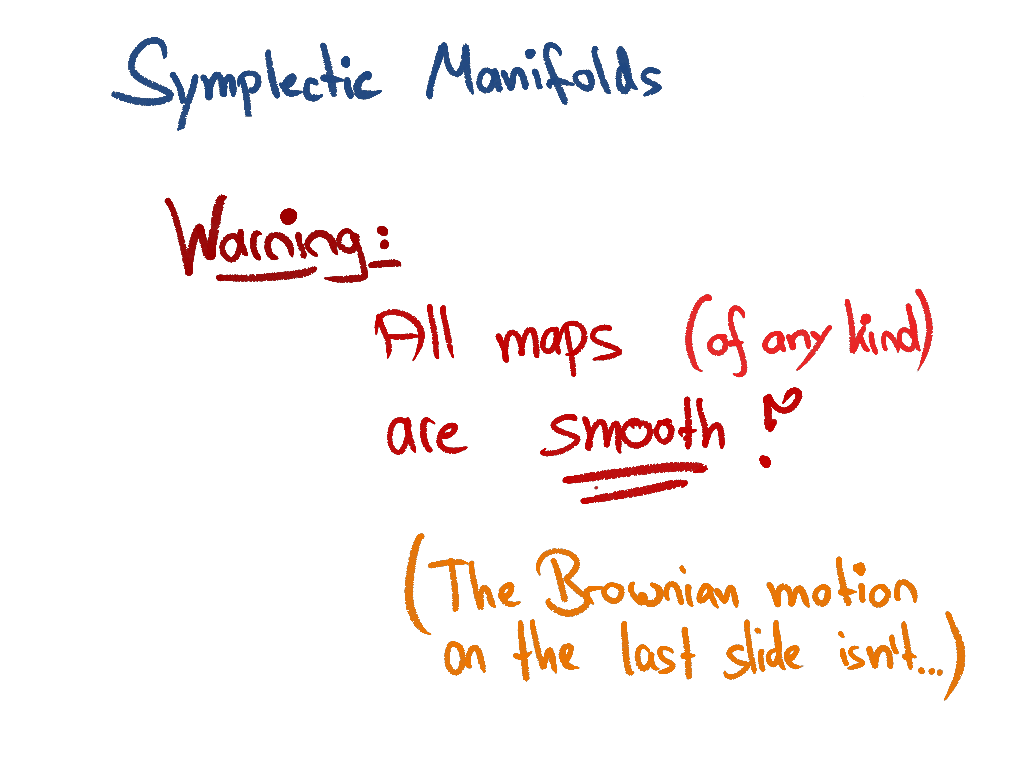 Symplectic Manifolds
Warning:
All maps (of any kind)
are smooth !
(The Brownian motion
on the last slide isn't...)